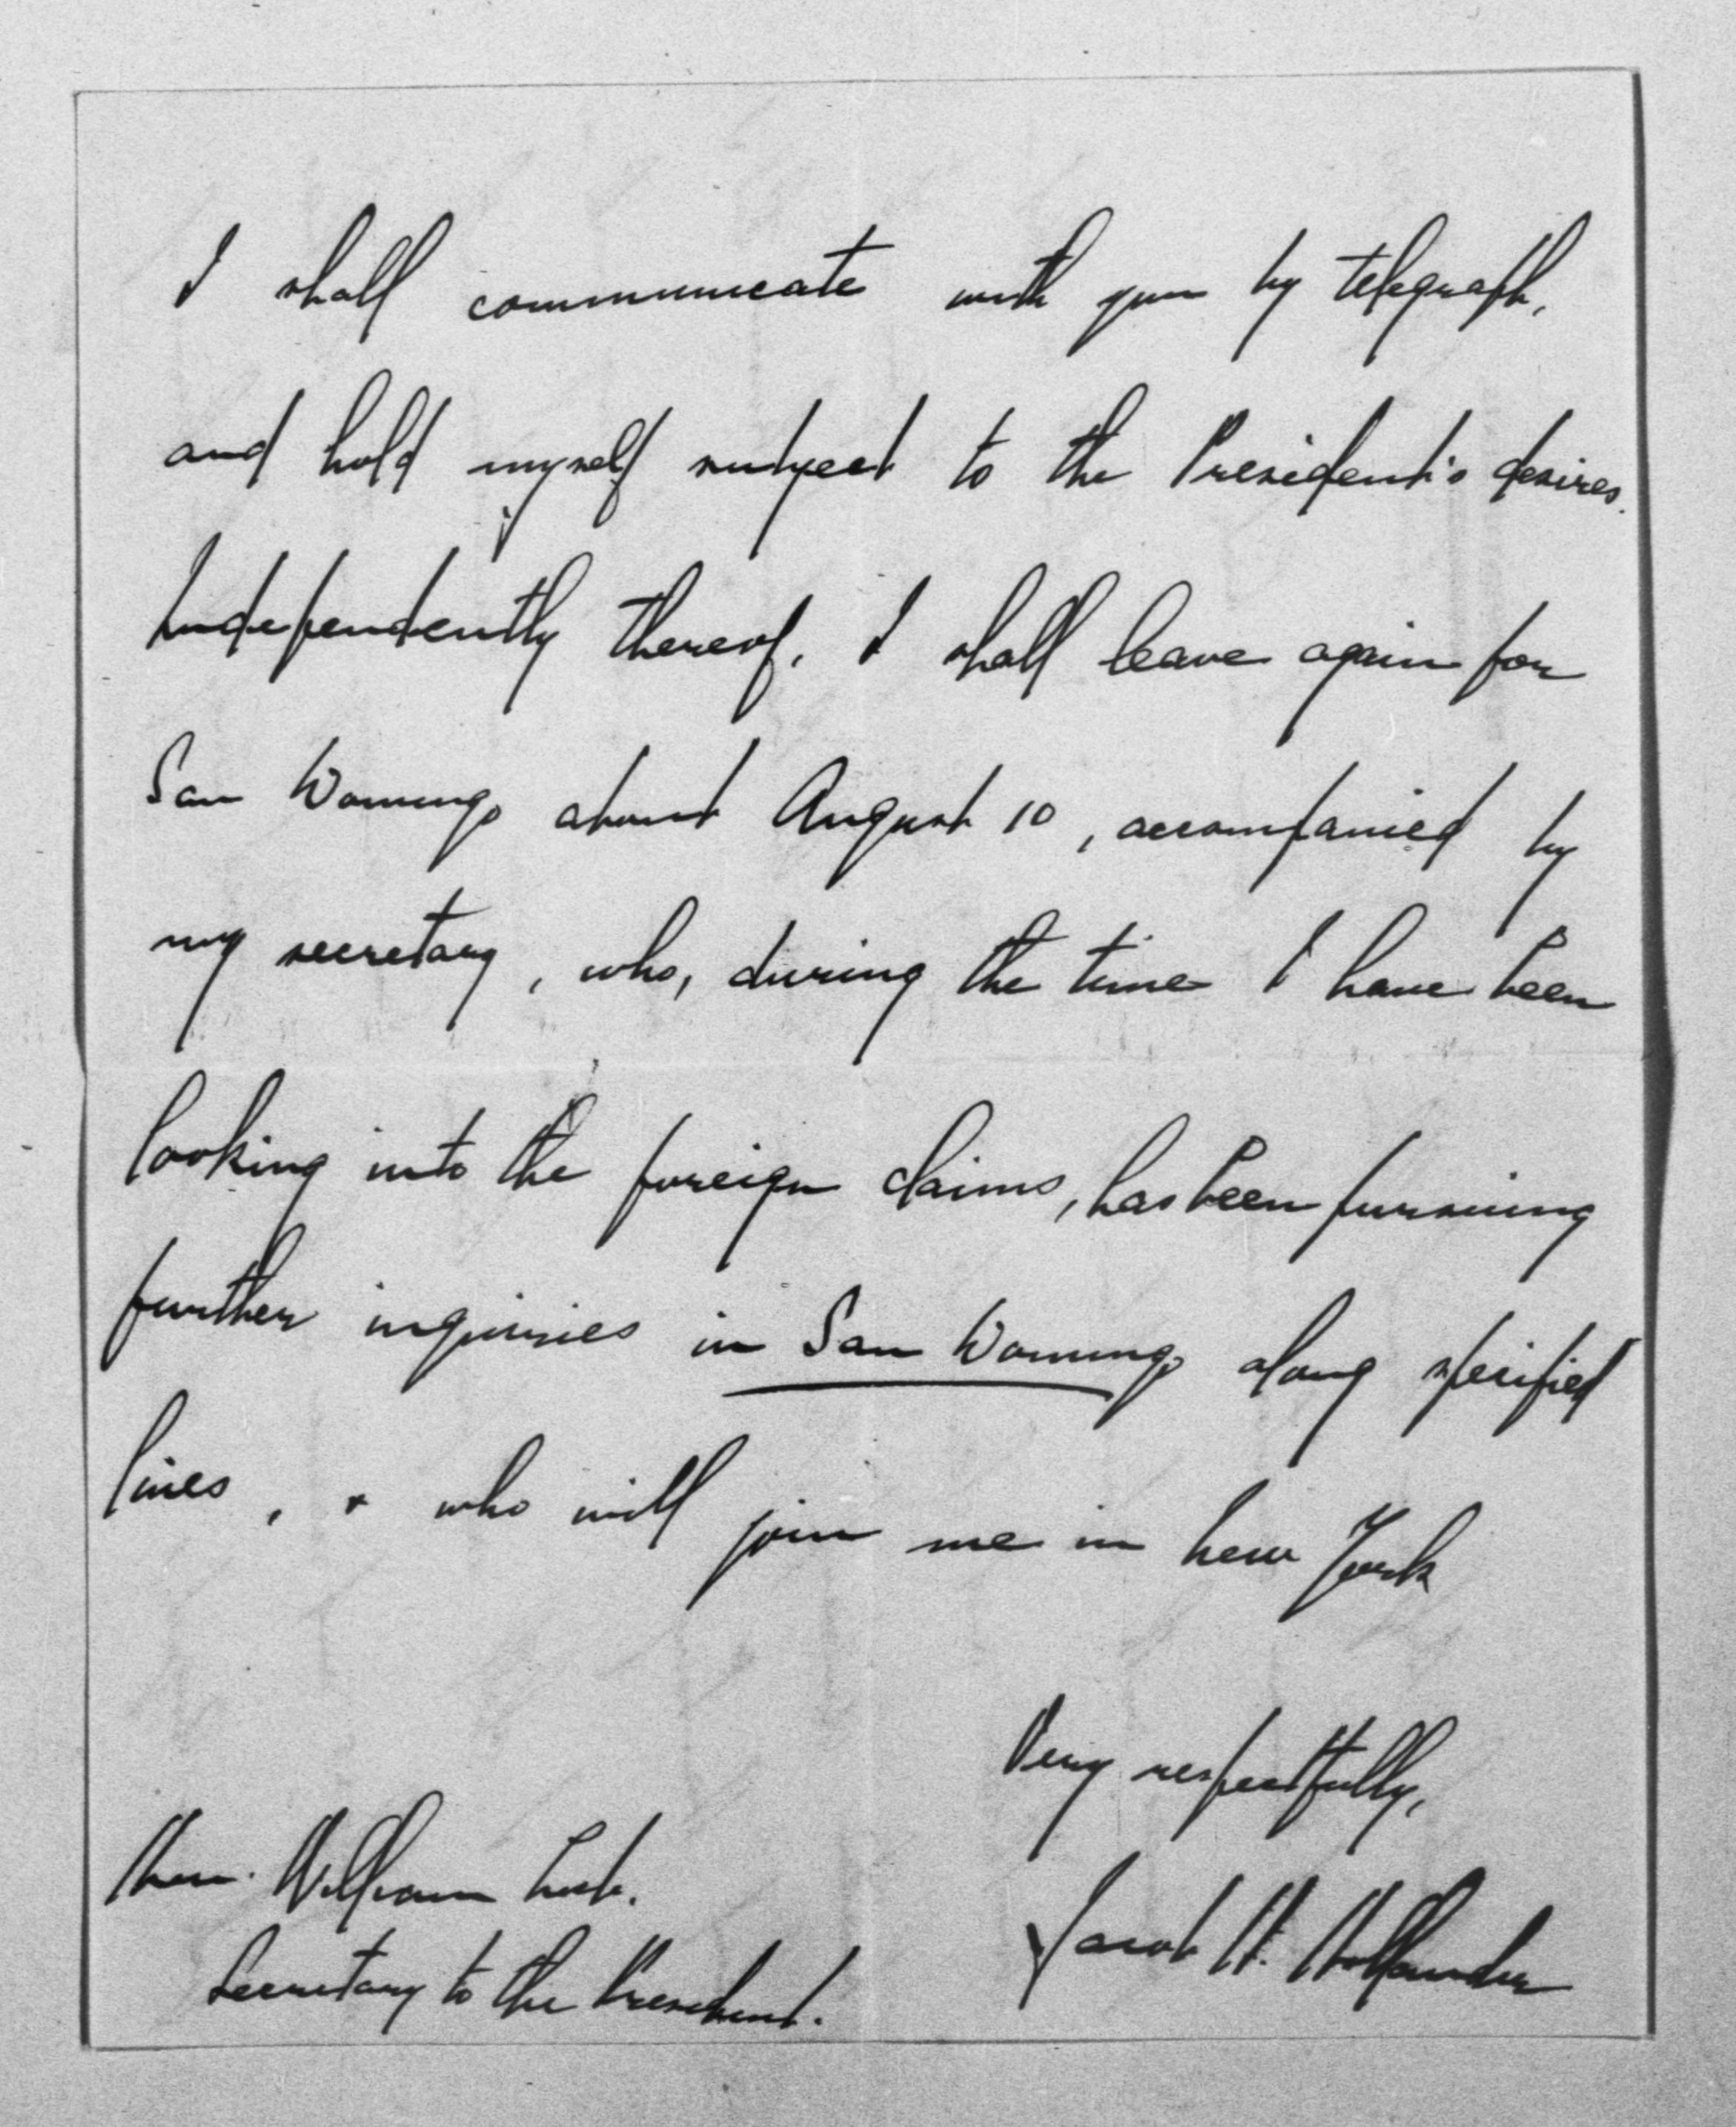 I shall communicate with you by telegraph,
and hold myself subject to the President's desires.
Independently thereof, I shall leave again for
San Domingo about August 10, accompanied by
my secretary, who, during the time I have been
looking into the foreign claims, has been pursuing
further inquiries in San Domingo along specified
lines, & who will join me in New York
Very respectfully,
Jacob H. Hollander
Hon. William Loeb.
Secretary to the President.